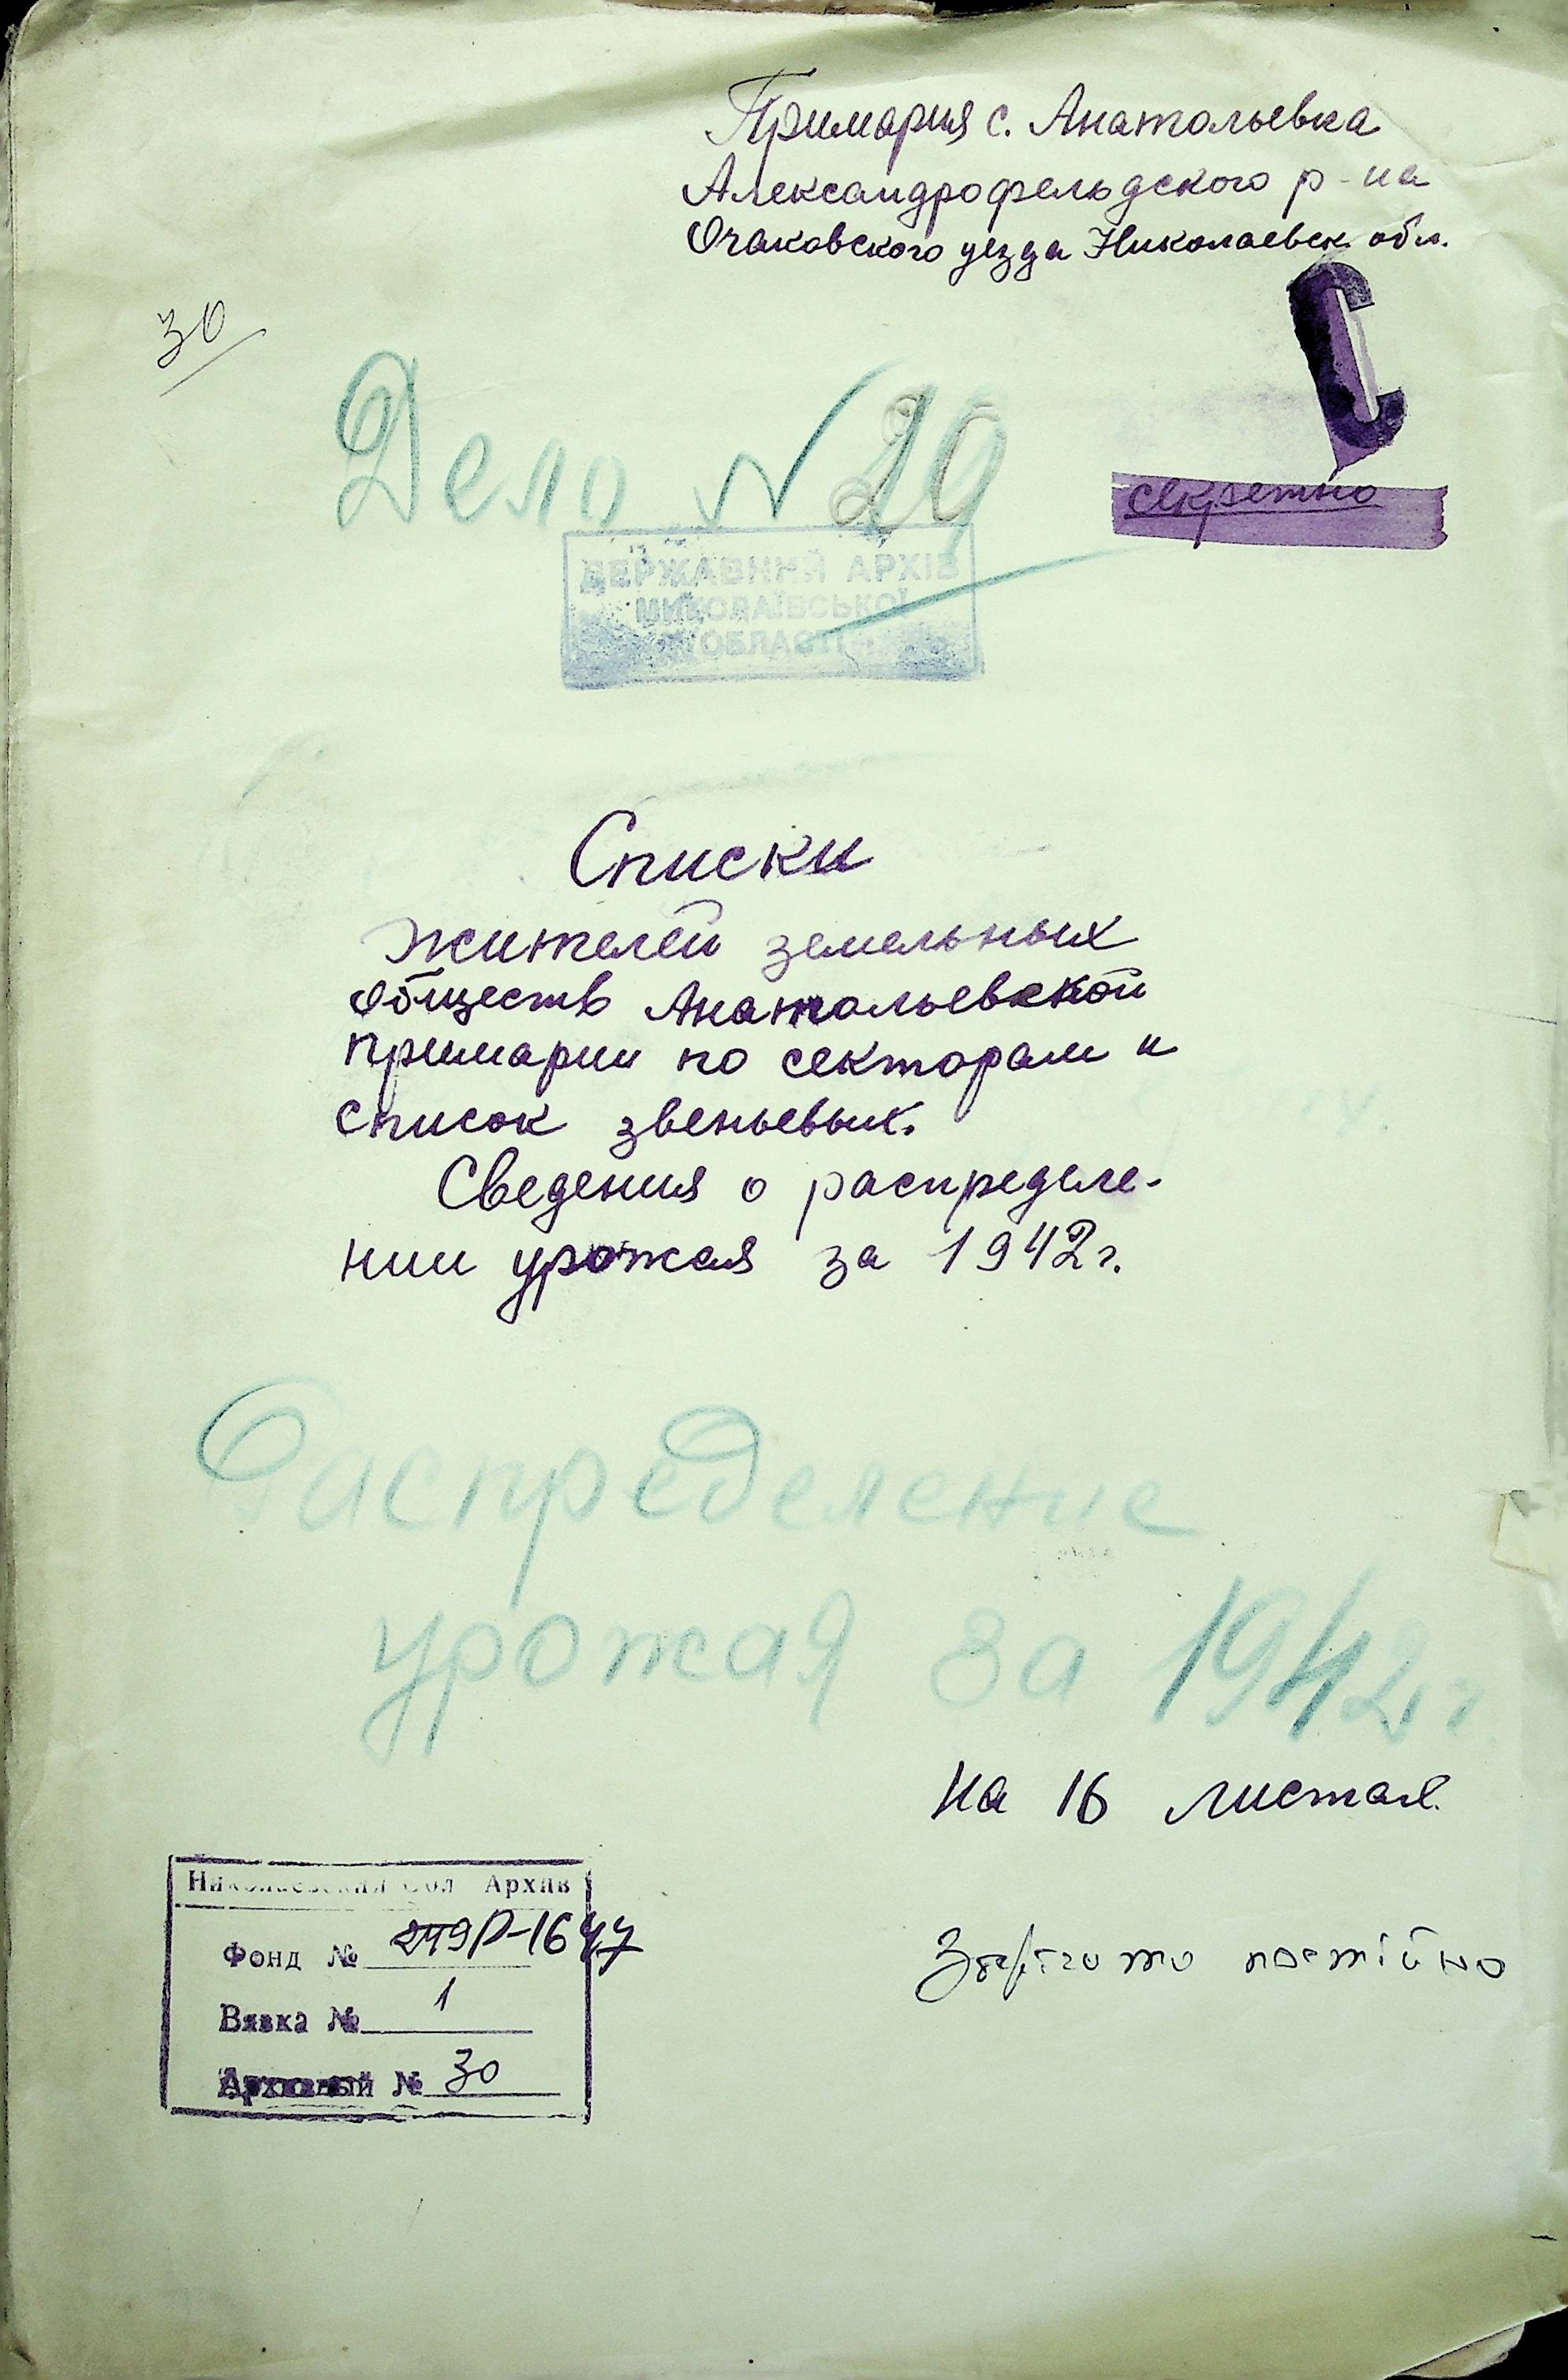 Примария с. Анатольевка
Александрофельдского р-на
Очаковского уезда Николаевск. обл.
30
С
секретно
Дело №
ДЕРЖАВНИЙ АРХІВ
МИКОЛАЇВСЬКОЇ
ОБЛАСТІ
Списки
жителей земельных
обществ Анатольевской
примарии по секторам и
список звеньевых.
Сведения о распределе-
нии урожая за 1942г.
Распределение
урожая за 1942 г
на 16 листах.
Николаевский Обл Архив
Фонд № Р-1647
Вязка № 1
Архивный № 30
Зберігати постійно